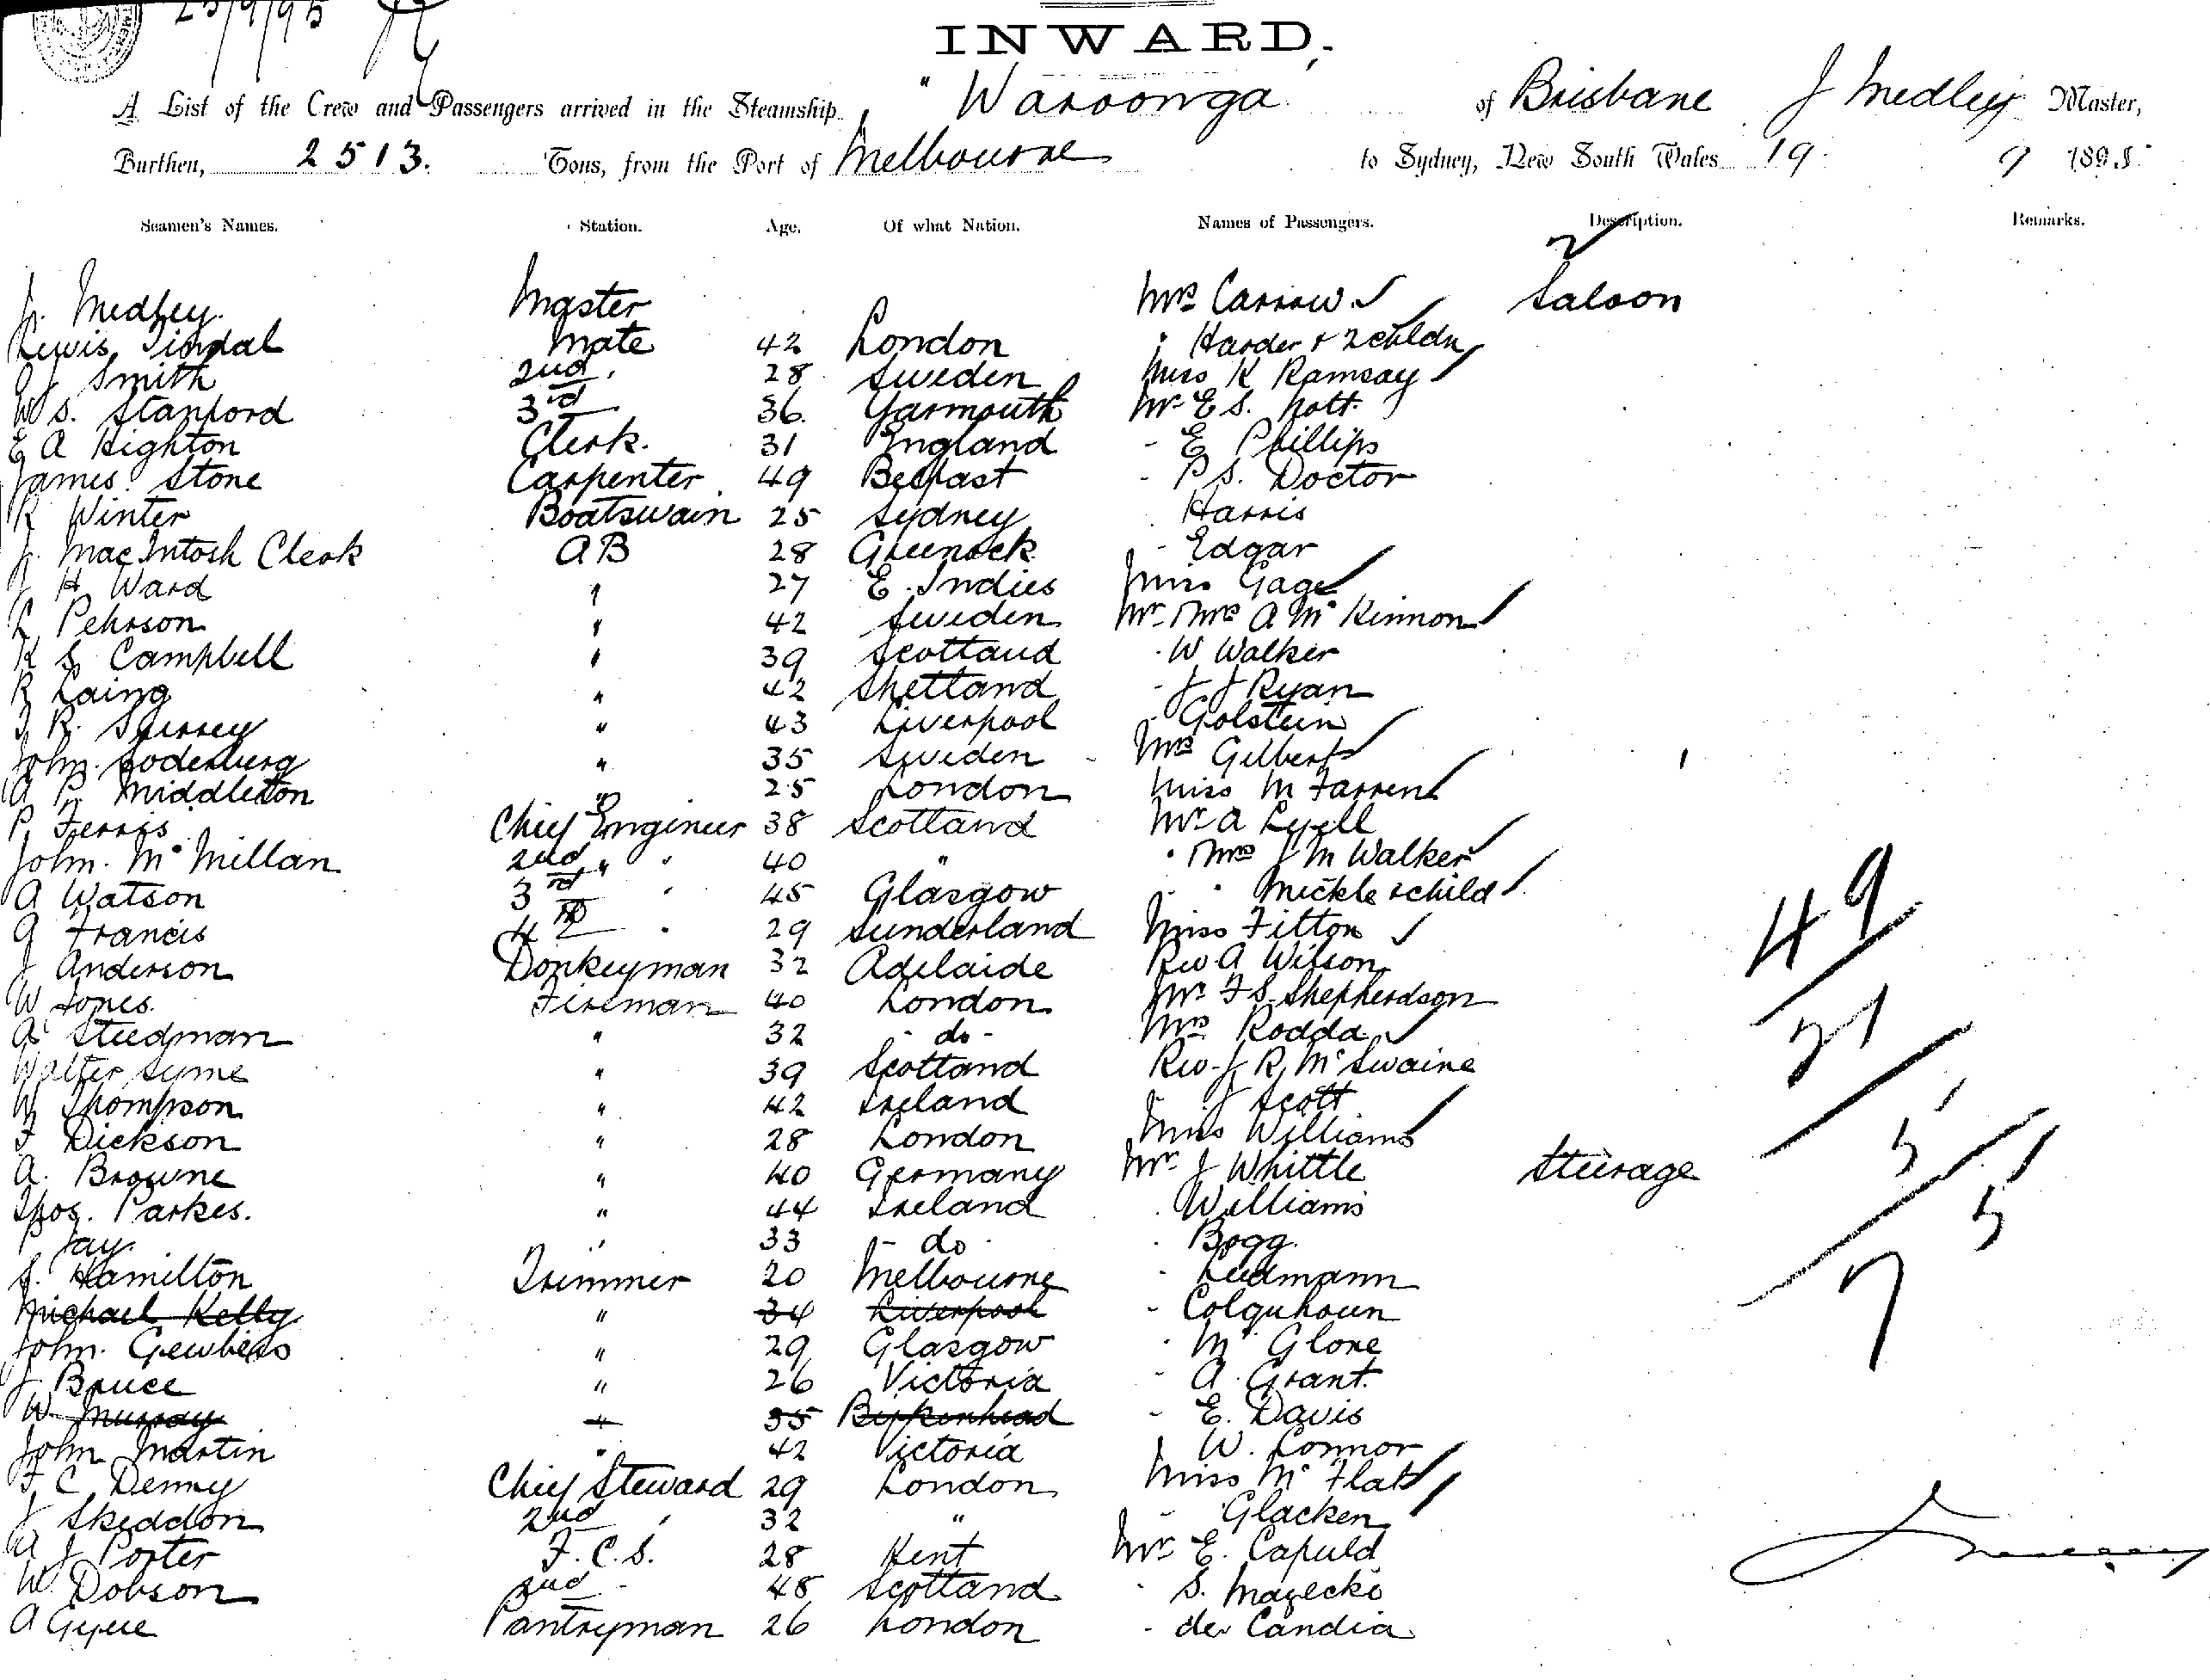 23/9/95
INWARD.
A List of the Crew and Passengers arrived in the Steamship "Waroonga" of Brisbane J Medley Master,
Burthen, 2513. Tons, from the Port of Melbourne to Sydney, New South Wales 19 9 1895
Seamen's Names. Station. Age. Of what Nation. Names of Passengers. Description. Remarks.
J. Medley. Master Mrs Carrow Saloon
Lewis Tindal Mate 42 London " Harder & 2 childn
Smith 2nd 28 Sweden Miss K Ramsay
W S. Stanford 3rd 36 Yarmouth Mr E S. Nott.
E A Highton Clerk. 31 England - E Phillips
James Stone Carpenter 49 Belfast - P S. Doctor
R Winter Boatswain 25 Sydney Harris
J. MacIntosh Clerk AB 28 Greenock - Edgar
J H Ward " 27 E. Indies Miss Gage
L Pehrson " 42 Sweden Mr. Mrs A Mc Kinnon
K S Campbell " 39 Scotland - W Walker
R Laing " 42 Shetland - J J Ryan
R. Spurrey " 43 Liverpool - Golstein
John Soderburg " 35 Sweden Mrs Gilbert
A P Middleton " 25 London Miss M Farren
P. Ferris Chief Engineer 38 Scotland Mr A Lyell
John. Mc Millan 2nd " " 40 " " Mrs J M Walker
A Watson 3rd " 45 Glasgow " " Mickle & child
G Francis 4th " 29 Sunderland Miss Fitton
J Anderson Donkeyman 32 Adelaide Rev A Wilson
W Jones. Fireman 40 London Mr F S. Shepherdson
A Steedman " 32 - do - Mrs Rodda
Walter Syme " 39 Scotland Rev. J R, Mc Swaine
W Thompson " 42 Ireland J Scott
F Dickson " 28 London Miss Williams
A. Browne " 40 Germany Mr J Whittle Steerage
Thos. Parkes. " 44 Ireland - Williams
P Jay. " 33 - do - - Bogg.
J. Hamilton Trimmer 20 Melbourne - Ludmann
Michael Kelly " 34 Liverpool - Colquhoun
John. " 29 Glasgow - Mc Glone
J. Bruce " 26 Victoria - A. Grant.
W. Murray " 35 Birkenhead - E. Davis
John Martin " 42 Victoria W. Connor
F C Denny Chief Steward 29 London Miss Mc Flat
J Skeddon 2nd " 32 " - Glacken
A J Porter F.C.S. 28 Kent Mr E. Capuld
W. Dobson 2nd - 48 Scotland - S.
A Pantryman 26 London - de Candia
49
21
5
5
7